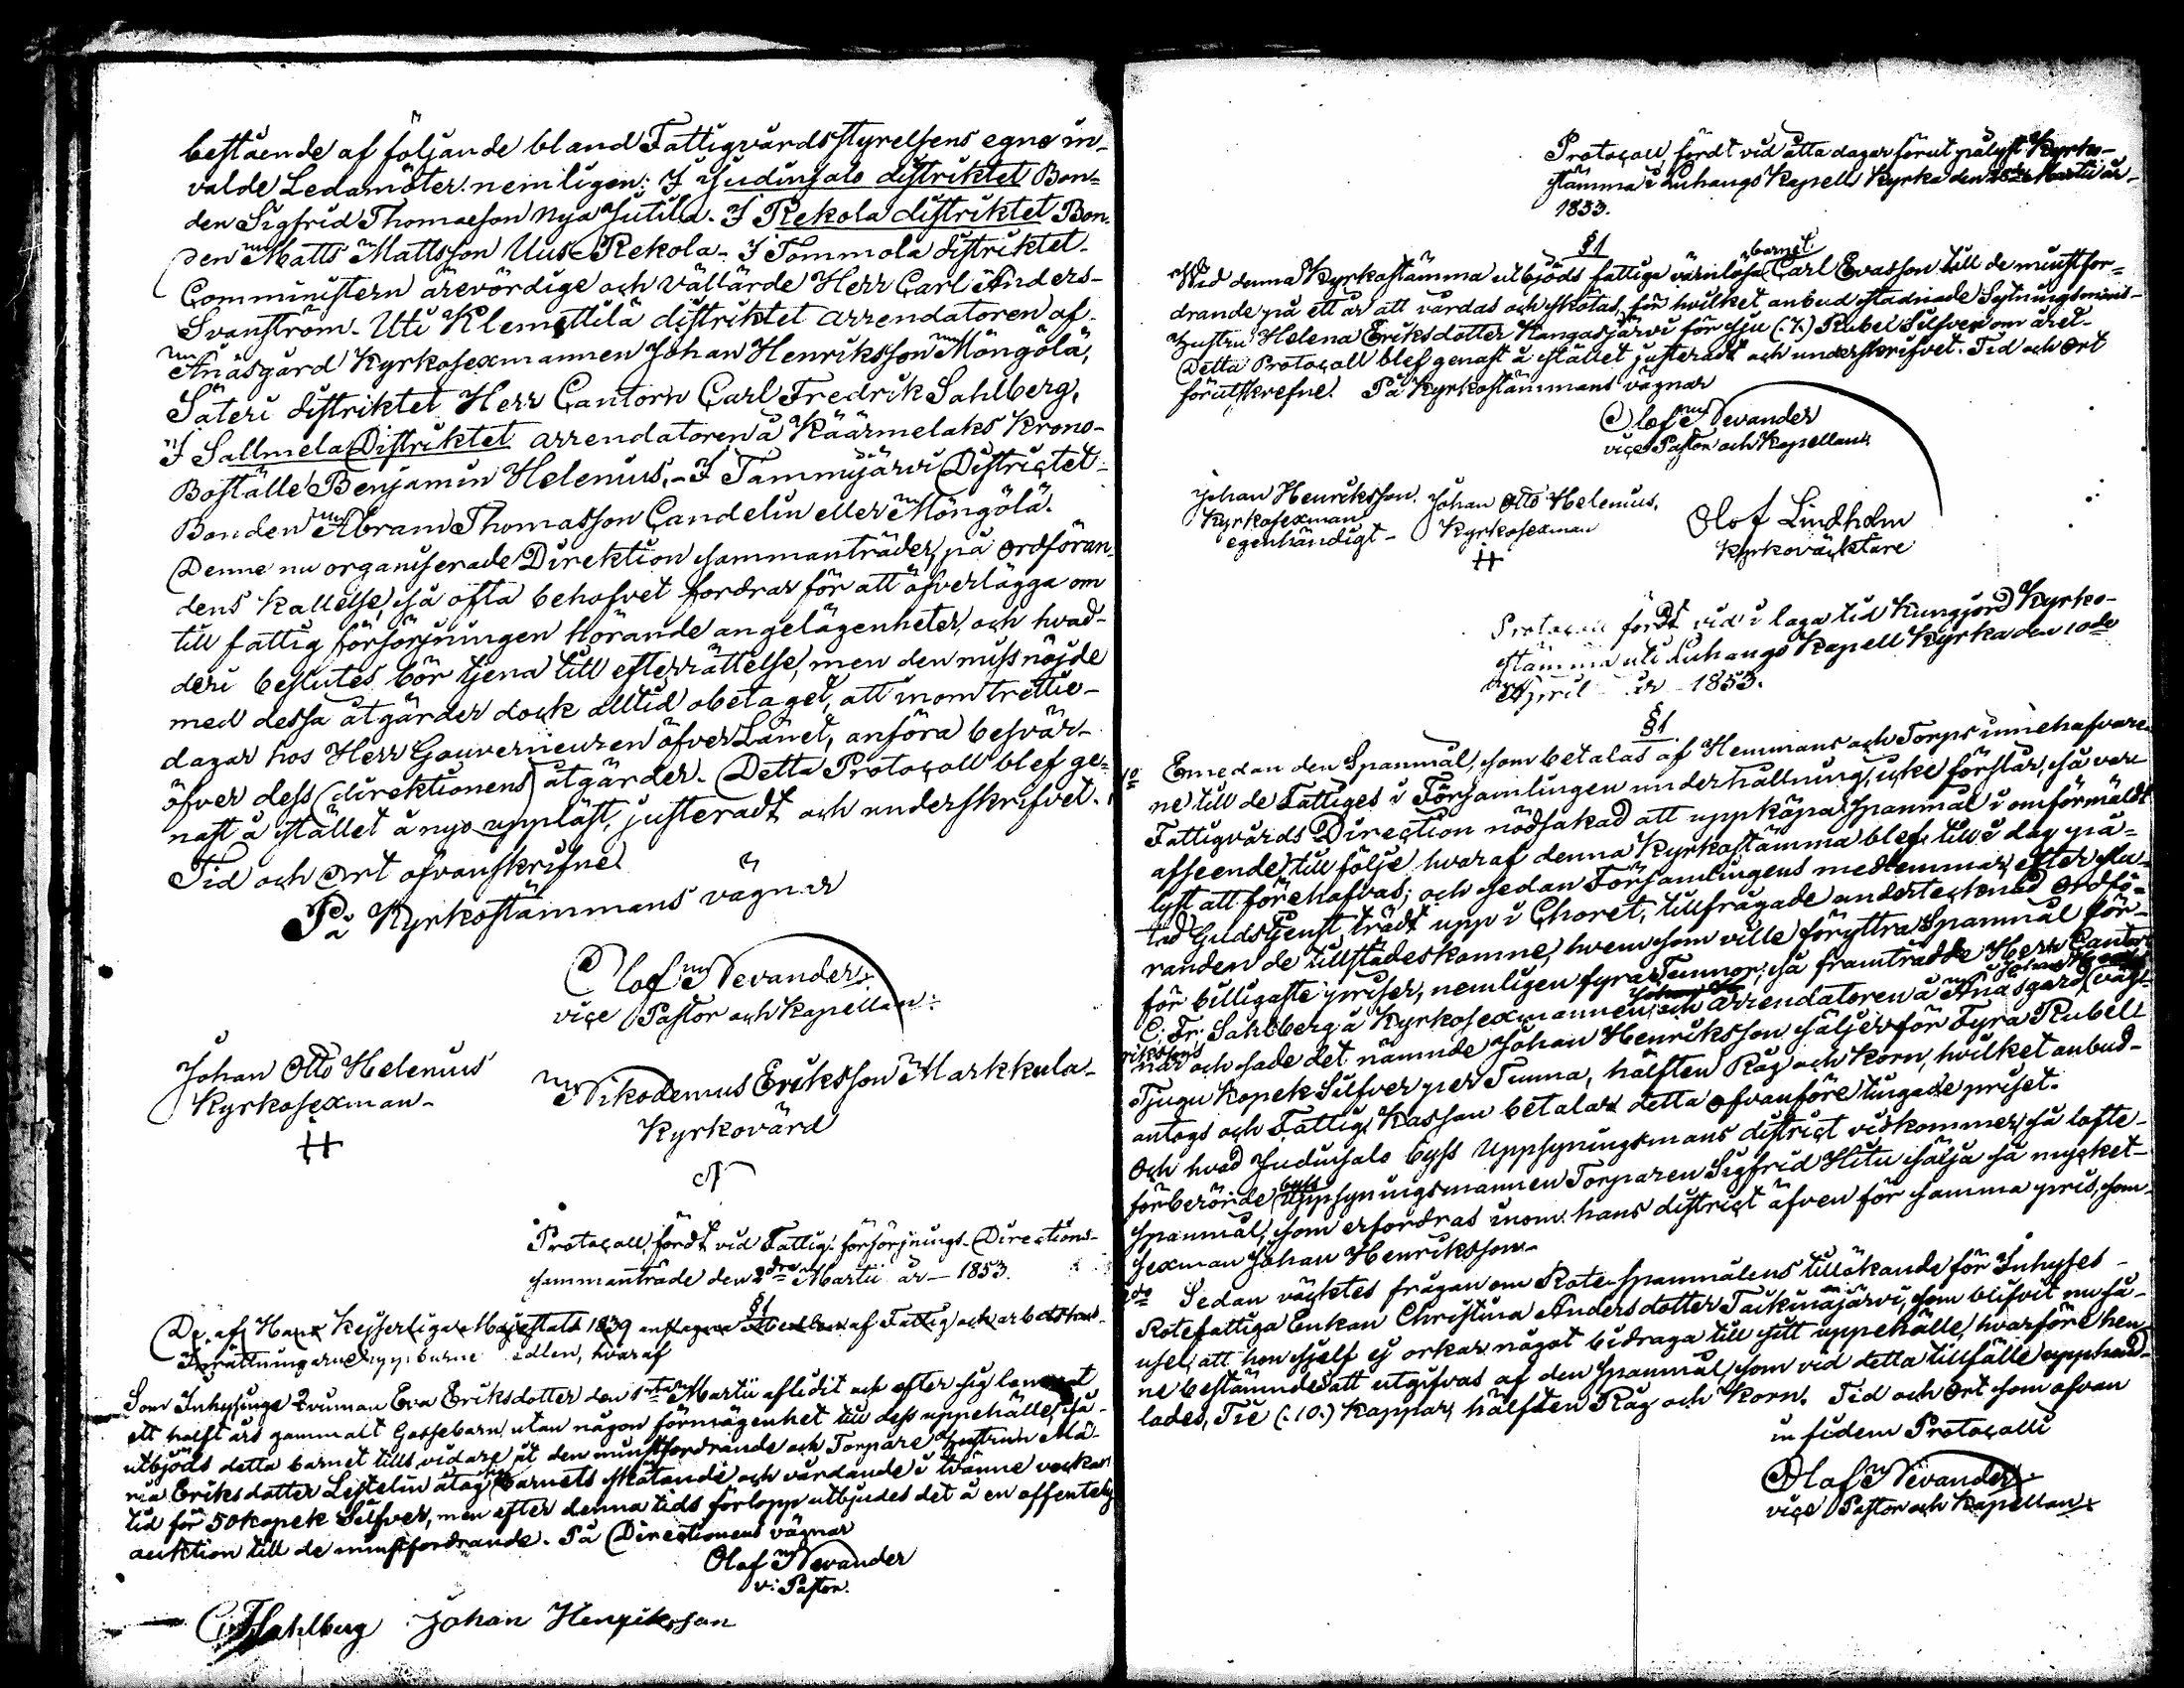 bestående af följande bland Fattigvårdsstyrelsens egne in-
valde Ledamöter nemligen: I Judinsalo distriktet Bon-
den Sigfrid Thomasson Nya Jutila. I Rekola distriktet Bon-
den Matts Mattsson Uusi-Rekola. I Tommola distriktet
Comministern ärevördige och vällärde Herr Carl Anders
Svanström. Uti Klemettilä distriktet arrendatoren af
Anäsgård Kyrkosexmannen Johan Henriksson Möngölä,
Säteri distriktet Herr Cantorn Carl Fredrik Sahlberg,
I Sallmela Distriktet arrendatoren å Käärmelaks Krono-
Boställe Benjamin Helenius, - I Tammijärvi Districtet
Bonden Abram Thomasson Candelin eller Möngölä.
Denne nu organiserade Direktion sammanträder, på ordföran-
dens kallelse, så ofta behofvet fordrar för att öfverlägga om
till fattig försörjningen hörande angelägenheter, och hvad-
deri beslutes bör tjena till efterrättelse, men den missnöjde
med dessa åtgärder dock alltid obetaget, att inom trettio-
dagar hos Herr Gouverneuren öfver Länet, anföra besvär-
öfver dess (direktionens) åtgärder. Detta Protocoll blef ge-
nast å stället å nyo uppläst, justeradt och underskrifvet.
Tid och Ort ofvanskrifne
På Kyrkostämmans vägnar
Olof Nevander
vice Pastor och Kapellan
Johan Otto Helenius
Kyrkosexman
Nikodemus Eriksson Markkula
Kyrkovärd
Protocoll, fördt vid Fattig-försörjnings-Directions-
sammanträde den 2dra Martii år 1853.
§1
De af Hans Kejserliga Majestäts 1839 af Fattig och arbetshus-
Inrättningarne
Som Inhysinge Qvinnan Eva Eriksdotter den 1sta Martii aflidit och efter sig lemnat
ett halft års gammalt Gossebarn, utan någon förmögenhet till dess uppehälle, så
utbjöds detta barnet tills vidare åt den minstfordrande och Torpare Hustrun Ma-
ria Eriksdotter Lestelin åtog barnets skötande och vårdande i tvänne veckors
tid för 50 kopek Silfver, men efter denna tids förlopp utbjudes det å en offentelig
auktion till de minstfordrande. På Directionens vägnar
Olof Nevander
v: Pastor.
C F Sahlberg Johan Henriksson
Protocoll, fördt vid åtta dagar förut pålyst Kyrko-
stämma i Luhango Kapell Kyrka den Martii år
1853.
§1
barnet
Wid denna Kyrkostämma utbjöds fattiga värnlösa Carl Evasson till de minstfor-
drande på ett år att vårdas och skötas, för hvilket anbud stadnade Sytningsmans-
Hustru Helena Eriksdotter Kangasjärvi för sju (:7:) Rubel Silfver om året.
Detta Protocoll blef genast å stället justeradt och underskrifvet. Tid och Ort
förutskrefne. På Kyrkostämmans vägnar
Olof Nevander
vice Pastor och Kapellan
Johan Henriksson.
Kyrkosexman
egenhändigt
Johan Otto Helenius,
Kyrkosexman
Olof Lindholm
Kyrkoväcktare
Protocoll fördt vid i laga tid Kungjord Kyrko-
stämma uti Luhango Kapell Kyrka den 10de
April år 1853.
§1.
1o Emedan den Spanmål, som betalas af Hemmans och Torps innehafvare-
ne till de Fattiges i Församlingen underhållning, icke förslår, så vore
Fattigvårds Direction nödsakad att uppköpa Spanmål i omförmäldt
afseende, till följe hvaraf denna Kyrkostämma blef till i dag på-
lyst att förehafvas; och sedan Församlingens medlemmar, efter slu-
tad Gudstjenst, trädt upp i Choret, tillfrågade undertecknad Ordfö-
randen de tillstädeskomne, hvem som ville föryttra Spanmål för-
för billigaste priser, nemligen fyra Tunnor, så framträdde Herr Cantor
C. Fr. Sahlberg å Kyrkosexmannen och arrendatoren å Anäsgård väg-
nar och sade det nämnde Johan Henriksson säljer för Fyra Rubel
Tjugu kopek Silfver per Tunna, hälften Råg och Korn, hvilket anbud-
antogs och Fattig Kassan betalar detta ofvanföre tingade priset.
Och hvad Judinsalo byss Uppsyningsmans district vidkommer, så lofte-
förberörde byss Uppsyningsmannen Torparen Sigfrid Hitu sälja så mycket-
spanmål, som erfordras inom hans district äfven för samma pris, som
sexman Johan Henriksson.
2do Sedan väcktes frågan om Rote-spanmålens tillökande för Inhyses-
Rotefattiga Enkan Christina Andersdotter Taikinajärvi, som blifvit nu så
usel, att hon sjelf ej orkar något bidraga till sitt uppehälle, hvarföre hen-
ne bestämdes att utgifvas af den spanmål, som vid detta tillfälle upphand-
lades, Tie (:10:) Kappar, hälften Råg och Korn. Tid och Ort som ofvan
in fidem Protocolli
Olof Nevander
vice Pastor och Kapellan